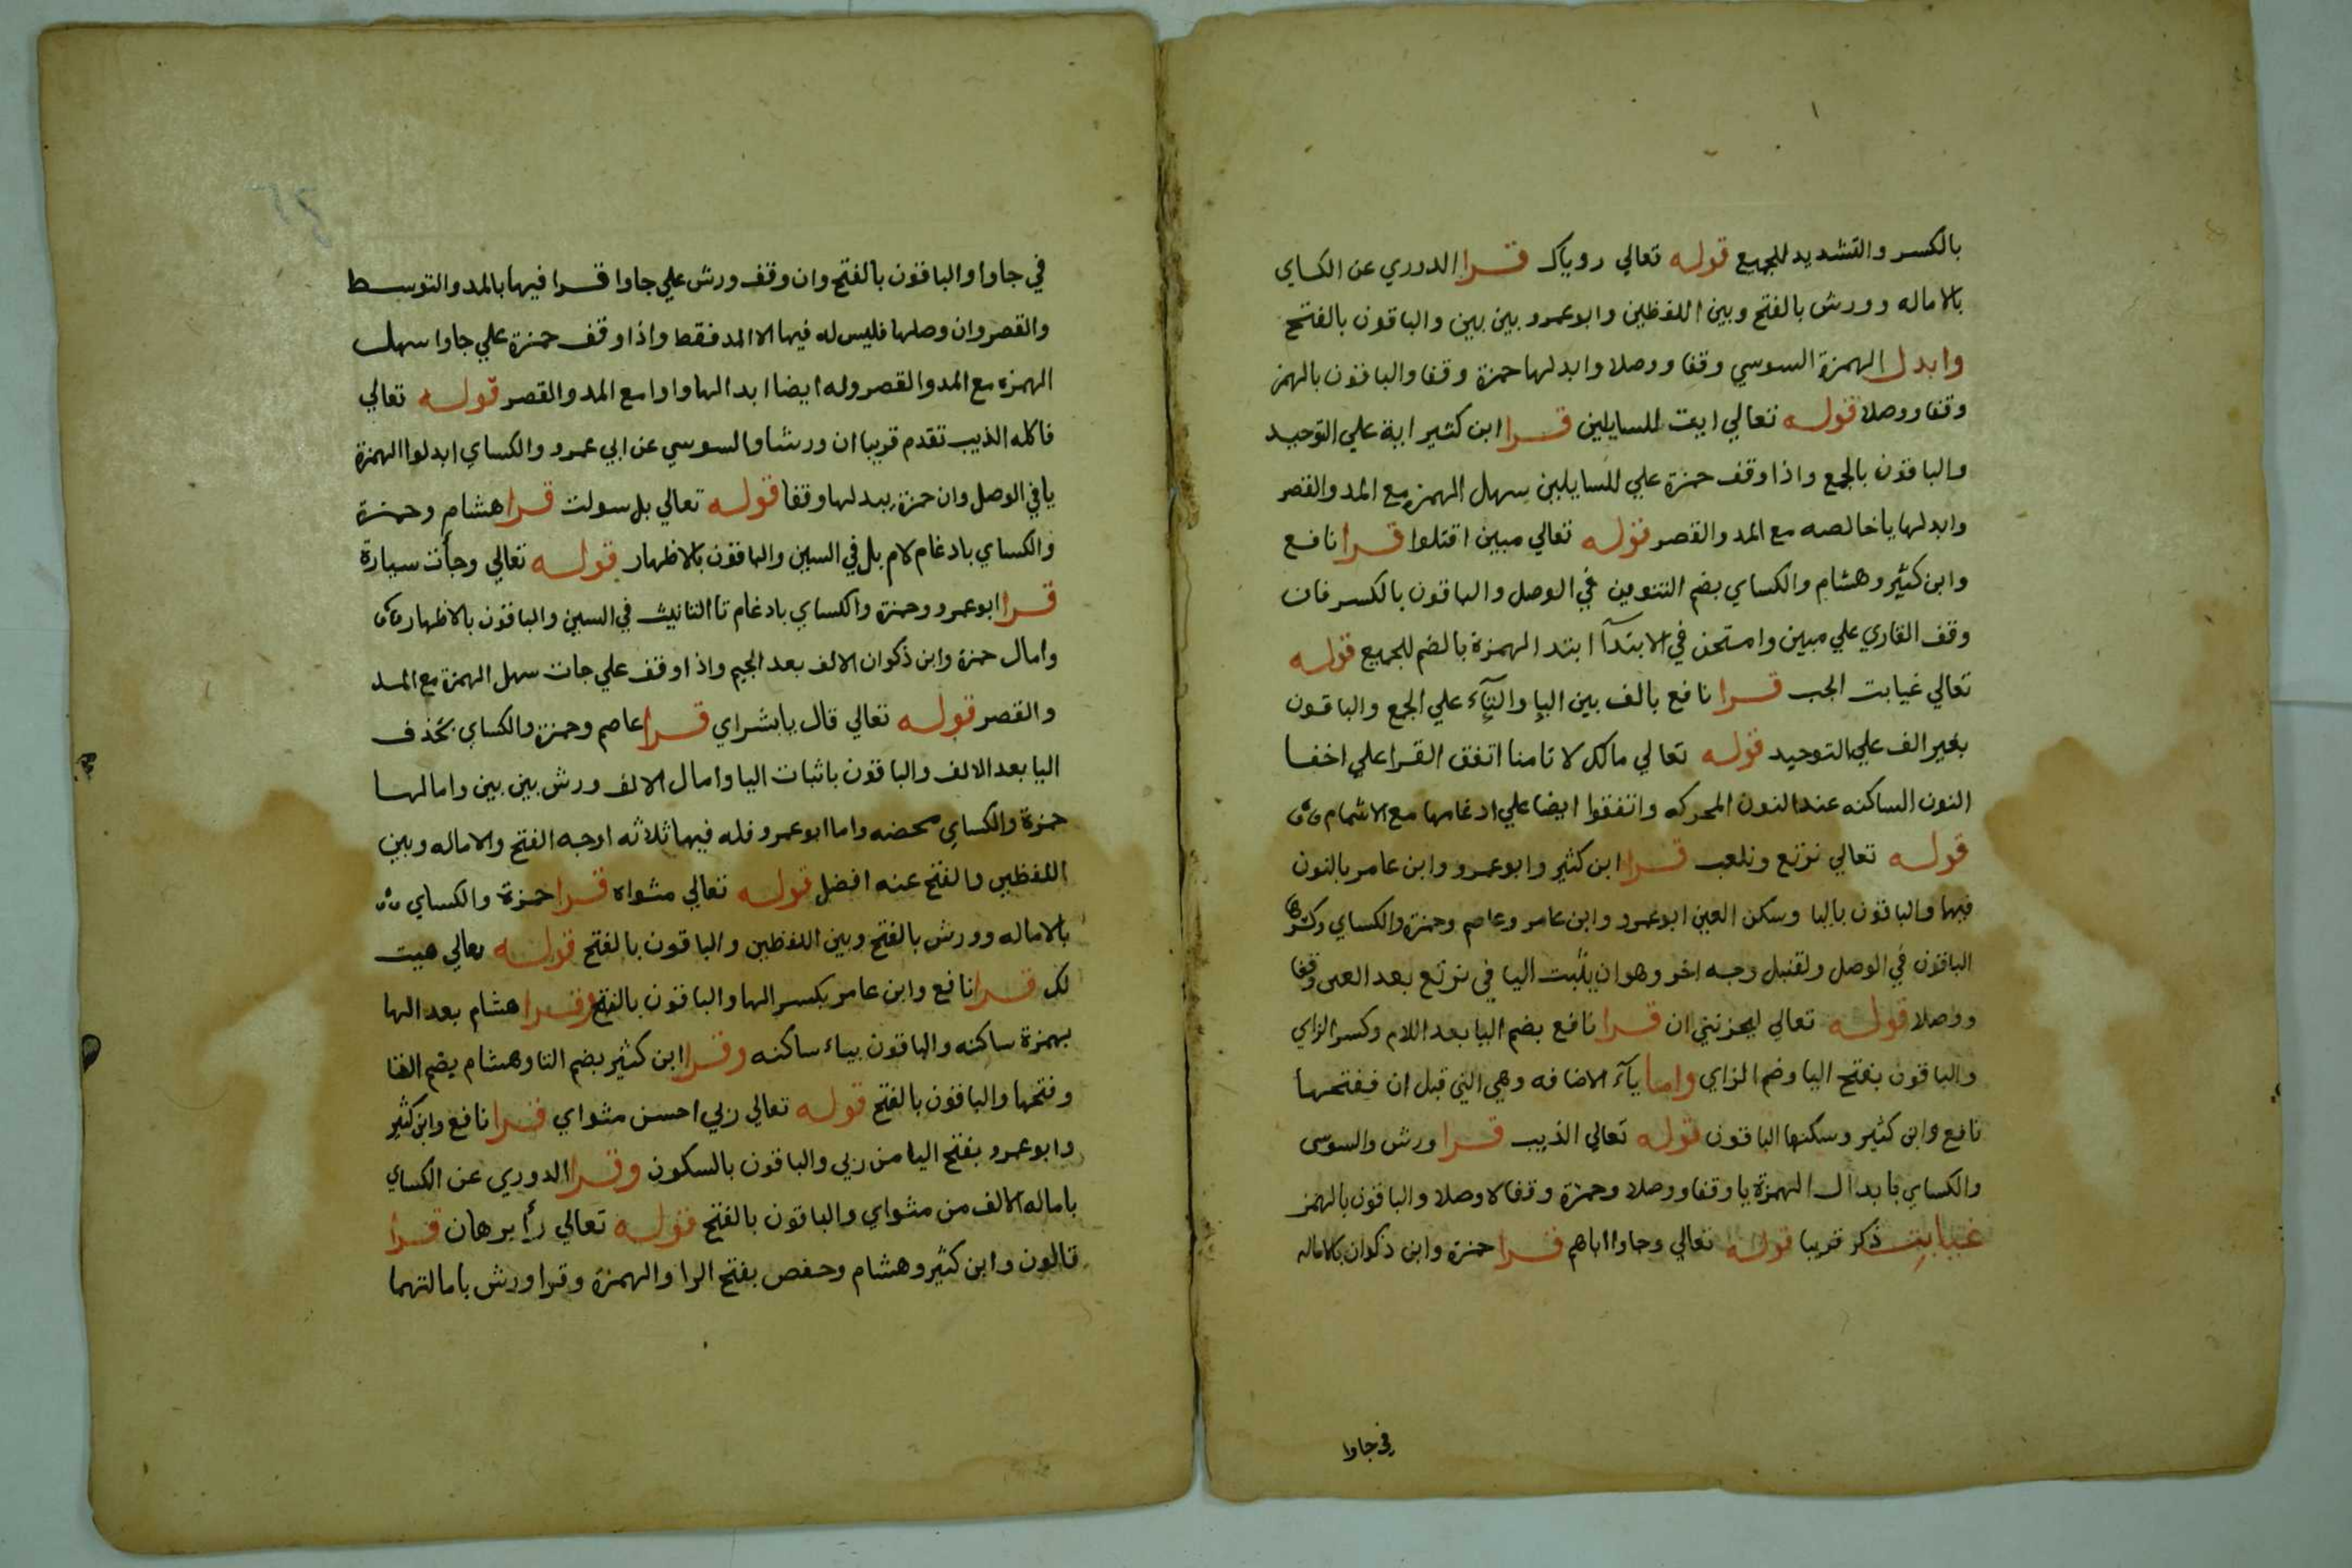 بالكسر والتشديد للجميع قوله تعالي روياك قرا الدوري عن الكساي
بالاماله وورش بالفتح وبين اللفظين وابوعمرو بين بين والباقون بالفتح
وابدل الهمزة السوسي وقفا ووصلا وابدلها حمزة وقفا والباقون بالهمز
وقفا ووصلا قوله تعالي ايت للسايلين قرا ابن كثير اية علي التوحيد
والباقون بالجمع واذا وقف حمزة علي للسايلين سهل الهمز مع المد والقصر
وابدلها ياخالصه مع المد والقصر قوله تعالي مبين اقتلوا قرا نافع
وابن كثير وهشام والكساي بضم التنوين في الوصل والباقون بالكسر فان
وقف القاري علي مبين وامتحن في الابتدآ ابتد الهمزة بالضم للجميع قوله
تعالي غيابت الجب قرا نافع بالف بين اليا والتآء علي الجمع والباقون
بغير الف علي التوحيد قوله تعالي مالك لا تامنا اتفق القرا علي اخفا
النون الساكنه عند النون المحركه واتفقوا ايضا علي ادغامها مع الاشمام
قوله تعالي نرتع ونلعب قرا ابن كثير وابوعمرو وابن عامر بالنون
فيها والباقون باليا وسكن العين ابوعمرو وابن عامر وعاصم وحمزة والكساي وكسرها
الباقون في الوصل ولقنبل وجه اخر وهو ان يثبت اليا في نرتع بعد العين وقفا
ووصلا قوله تعالي ليحزنني ان قرا نافع بضم اليا بعد اللام وكسر الزاي
والباقون بفتح اليا وضم الزاي واما يآء الاضافه وهي التي قبل ان ففتحها
نافع وابن كثير وسكنها الباقون قوله تعالي الذيب قرا ورش والسوسي
والكساي بابدال الهمزة يا وقفا ووصلا وحمزة وقفا لا وصلا والباقون بالهمز
غيابت ذكر قريبا قوله تعالي وجاوا اباهم قرا حمزة وابن ذكوان بالاماله
في جاوا
في جاوا والباقون بالفتح وان وقف ورش علي جاوا قرا فيها بالمد والتوسط
والقصر وان وصلها فليس له فيها الا المد فقط واذا وقف حمزة علي جاوا سهل
الهمزه مع المد والقصر وله ايضا ابدالها واوا مع المد والقصر قوله تعالي
فاكله الذيب تقدم قريبا ان ورشا والسوسي عن ابي عمرو والكساي ابدلوا الهمزة
يا في الوصل وان حمزة يبدلها وقفا قوله تعالي بل سولت قرا هشام وحمزة
والكساي بادغام لام بل في السين والباقون بالاظهار قوله تعالي وجأت سيارة
قرا ابوعمرو وحمزة والكساي بادغام تا التانيث في السين والباقون بالاظهار
وامال حمزة وابن ذكوان الالف بعد الجيم واذا وقف علي جات سهل الهمزة مع المد
والقصر قوله تعالي قال يابشراي قرا عاصم وحمزة والكساي بحذف
اليا بعد الالف والباقون باثبات اليا وامال الالف ورش بين بين وامالها
حمزة والكساي محضه واما ابوعمرو فله فيها ثلاثه اوجه الفتح والاماله وبين
اللفظين والفتح عنه افضل قوله تعالي مثواه قرا حمزة والكساي
بالاماله وورش بالفتح وبين اللفظين والباقون بالفتح قوله تعالي هيت
لك قرا نافع وابن عامر بكسر الها والباقون بالفتح وقرا هشام بعد الها
بهمزة ساكنه والباقون بياء ساكنه وقرا ابن كثير بضم التا وهشام يضم التا
وفتحها والباقون بالفتح قوله تعالي ربي احسن مثواي قرا نافع وابن كثير
وابوعمرو بفتح اليا من ربي والباقون بالسكون وقرا الدوري عن الكساي
باماله الالف من مثواي والباقون بالفتح قوله تعالي رأ برهان قرا
قالون وابن كثير وهشام وحفص بفتح الرا والهمزة وقرا ورش بامالتهما